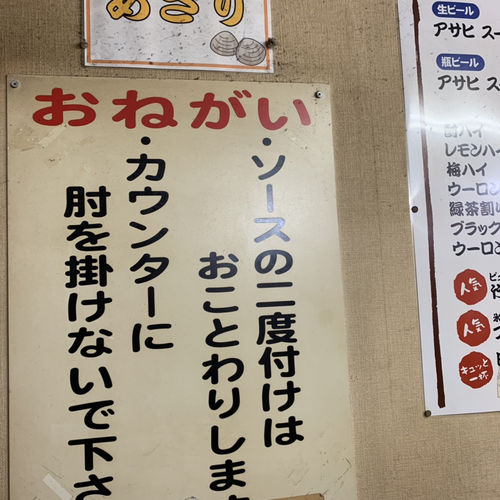 あさり
おねがい
・ソースの二度付けは
おことわりしま
・カウンターに
肘を掛けないで下さ
生ビール
アサヒ スー
瓶ビール
アサヒ ス
酎ハイ
レモンハイ
梅ハイ
ウーロン
緑茶割り
ブラック
ウーロ
人気
人気
キュッと
一杯